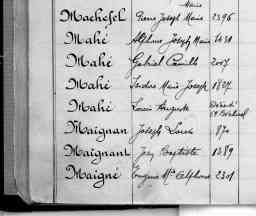 Marie
Machefel Pierre Joseph Marie 2396
Mahé Alphonse Joseph Marie
Mahé Gabriel Camille 2007
Mahé Isidore Marie Joseph 1827
Mahé Louis Auguste
Maignan Joseph Louis 870
Maignant Jean Baptiste 1289
Maigné Eugène Mie Alphonse 2301